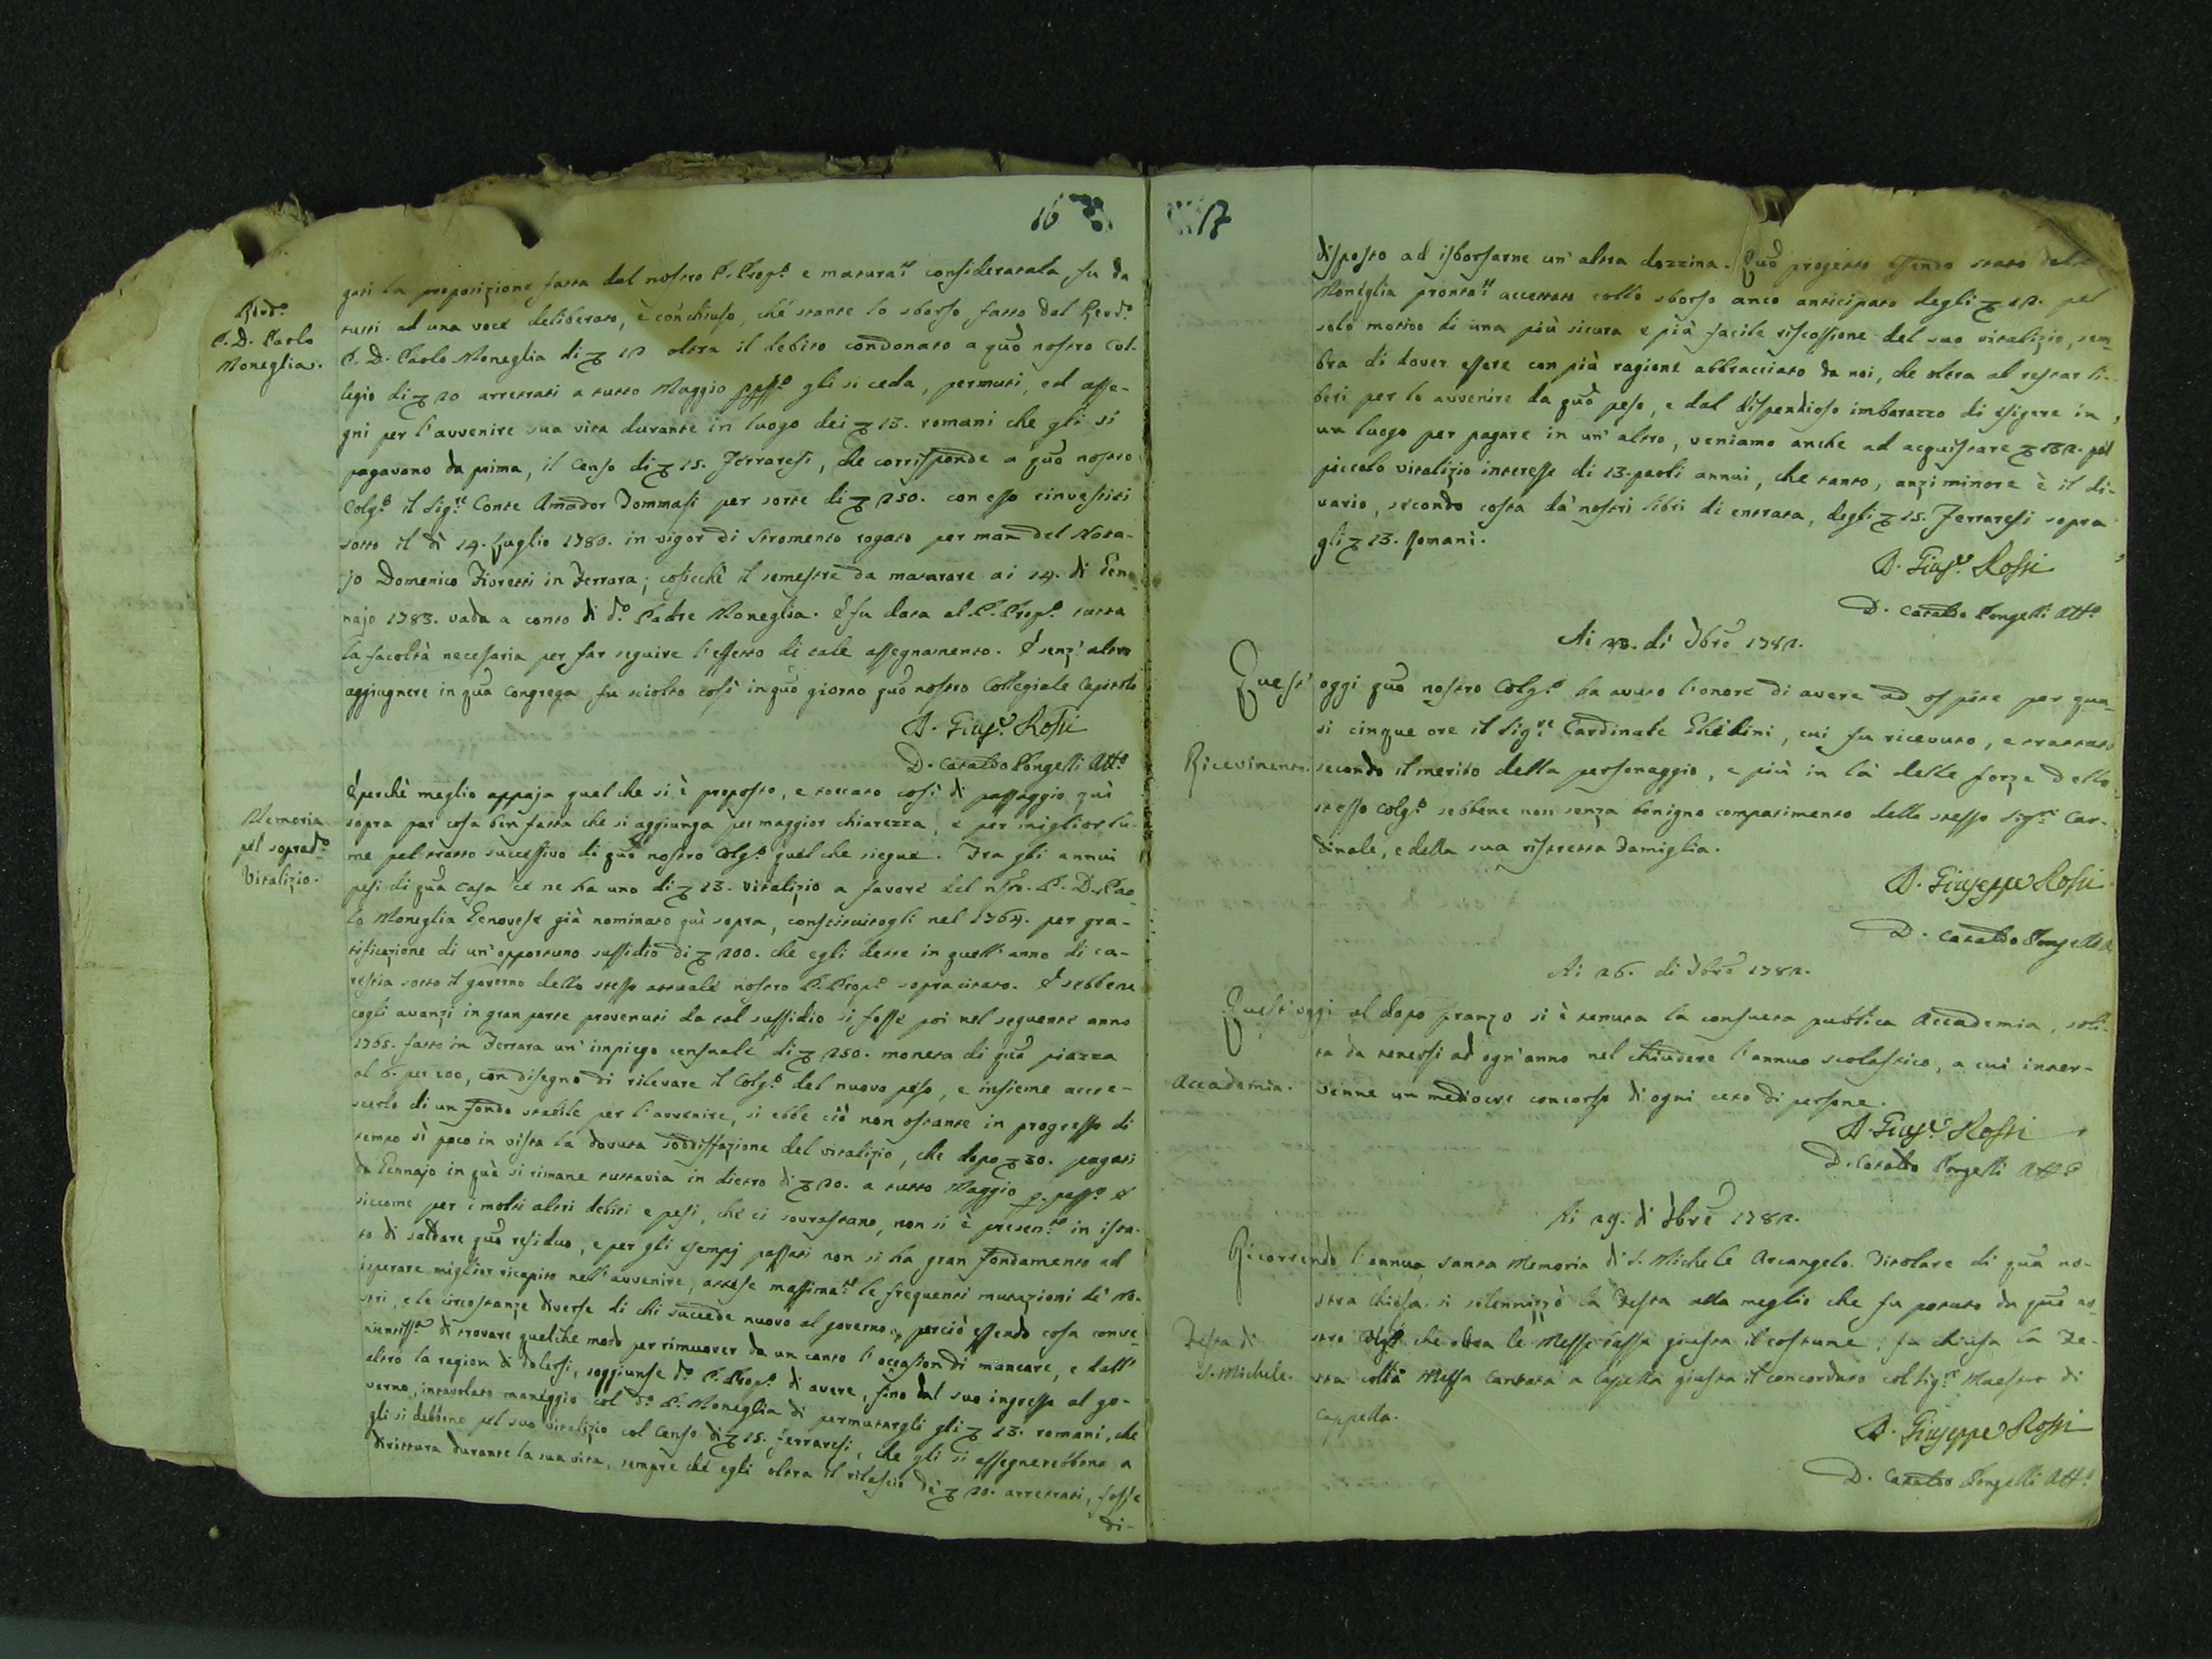 16
gati la proposizione fatta dal nostro P. Prop.o e matura.te consideratala, fu da
Rev.do
P. D. Paolo
Moneglia.
tutti ad una voce deliberato, è conchiuso, ché stante lo sborso fatto dal Rev.do
P. D. Paolo Moneglia di 12 oltra il debito condonato a quo nostro Col-
legio di 20 arretrati a tutto Maggio gli si ceda, permuti, ed asse-
gni per l'avvenire sua vita durante in luogo dei 13. romani che gli si
pagavano da prima, il Censo di 15. Ferraresi, che corrisponde a quo nostro
Colg.o il Sig.re Conte Amador Tommasi per sorte di 250. con esso rinvestiti
sotto il dì 14. Luglio 1780. in vigor di Stromento rogato per man del Nota-
jo Domenico Fioretti in Ferrara; cosicchè il semestre da maturare ai 14. di Gen-
najo 1783. vada a conto di d.o Padre Moneglia. E fu data al P. Prop.o tutta
la facoltà necessaria per far seguire l'effetto di tale assegnamento. E senz'altro
aggiugnere in qua Congrega fu sciolto così in quo giorno quo nostro Collegiale Capitolo
D. Gius.e Rossi
D. Cataldo Pongelli Att.o
E perchè meglio appaja quel che si è proposto, e toccato così di passaggio quì
Memoria
pel soprad.o
Vitalizio.
sopra par cosa ben fatta che si aggiunga per maggior chiarezza, e per miglior lu-
me pel tratto sucessivo di quo nostro Colg.o quel che siegue. Tra gli annui
pesi di qua Casa ce ne ha uno di 13. vitalizio a favore del nro. P. D. Pao-
lo Moneglia Genovese già nominato quì sopra, constituitogli nel 1764. per gra-
tificazione di un'opportuno sussidio di 200. che egli dette in quell'anno di ca-
restia sotto il governo dello stesso attuale nostro P. Prop.o sopracitato. E sebbene
cogli avanzi in gran parte provenuti da tal sussidio si fosse poi nel seguente anno
1765. fatto in Ferrara un'impiego censuale di 250. moneta di quo piazza
al 6. per 100, con disegno di rilevare il Colg.o del nuovo peso, e insieme accre-
scerlo di un fondo stabile per l'avvenire, si ebbe ciò non ostante in progresso di
tempo sì poco in vista la dovuta soddisfazione del vitalizio, che dopo 30. pagati
da Gennajo in quà si rimane tuttavia in dietro di 20. a tutto Maggio p. pass.o E
siccome per i molti altri debiti e pesi, che ci sovrastano, non si è presen.te in ista-
to di saldare quo residuo, e per gli esempj passati non si ha gran fondamento ad
isperare miglior ricapito nell'avvenire, attese massima.te le frequenti mutazioni de' no-
stri, e le circostanze diverse di chi succede nuovo al governo, perciò essendo cosa conve-
nientiss.a di trovare quelche modo per rimuover da un canto l'occasion di mancare, e dall'
altro la region di dolersi, soggiunse d.o P. Prop.o di avere, fino dal suo ingresso al go-
verno, intavolato maneggio col d.o P. Moneglia di permutargli gli 13. romani, che
gli si debbono pel suo vitalizio col Censo di 15. Ferraresi, che gli si assegnerebbono a
dirittura durante la sua vita, sempre chè egli oltra il rilascio di 20. arretrati, fosse
di-
17
disposto ad isborsarne un'altra dozzina. Quo progetto essendo stato dal
Moneglia pronta.te accettato collo sborso anco anticipato degli 12. pel
solo motivo di una più sicura e più facile riscossione del suo vitalizio, sem-
bra di dover essere con più ragione abbracciato da noi, che oltra al restar li-
beri per lo avvenire da quo peso, e dal dispendioso imbarazzo di esigere in
un luogo per pagare in un'altro, veniamo anche ad acquistare pel
piccolo vitalizio interesse di 13. paoli annui, che tanto, anzi minore è il di-
vario, secondo costa da' nostri libri di entrata, degli 15. Ferraresi sopra
gli 13. Romani.
D. Gius.e Rossi
D. Cataldo Pongelli Att.o
Ai 20. di 7bre 1782.
Quest'oggi quo nostro Colg.o ha avuto l'onore di avere ad ospite per qua-
si cinque ore il Sig.re Cardinale Ghilini, cui fu ricevuto, e trattato
Ricevimento.
secondo il merito della personaggio, e più in là delle forze dello
stesso Colg.o sebbene non senza benigno compatimento dello stesso Sig.re Car-
dinale, e della sua ristretta Famiglia.
D. Giuseppe Rossi
D. Cataldo Pongelli
Ai 26. di 7bre 1782.
Quest'oggi al dopo pranzo si è tenuta la consueta publica Accademia, soli-
ta da tenersi ad ogn'anno nel chiudere l'annuo scolastico, a cui inter-
Accademia.
venne un mediocre concorso di ogni ceto di persone.
D. Gius.e Rossi
D. Cataldo Pongelli Att.o
Ai 29. di 7bre 1782.
Ricorrendo l'annua santa Memoria di S. Michele Arcangelo Titolare di qua no-
stra Chiesa si solennizzò la Festa alla meglio che fu potuto da quo no-
Festa di
S. Michele.
stro Colg.o che oltra le Messe basse giusta il costume, fu chiusa la Fe-
sta colla Messa Cantata a Capella giusta il concordato col Sig.re Maestro di
Cappella.
D. Giuseppe Rossi
D. Cataldo Pongelli Att.o